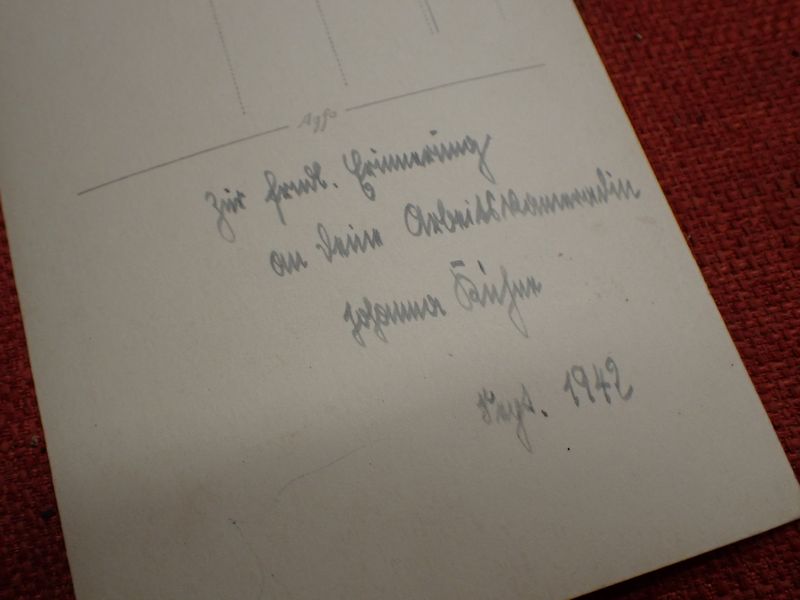 Agfa
Zur frndl. Erinnerung
an Deine Arbeitskameradin
Johanna
Sept. 1942